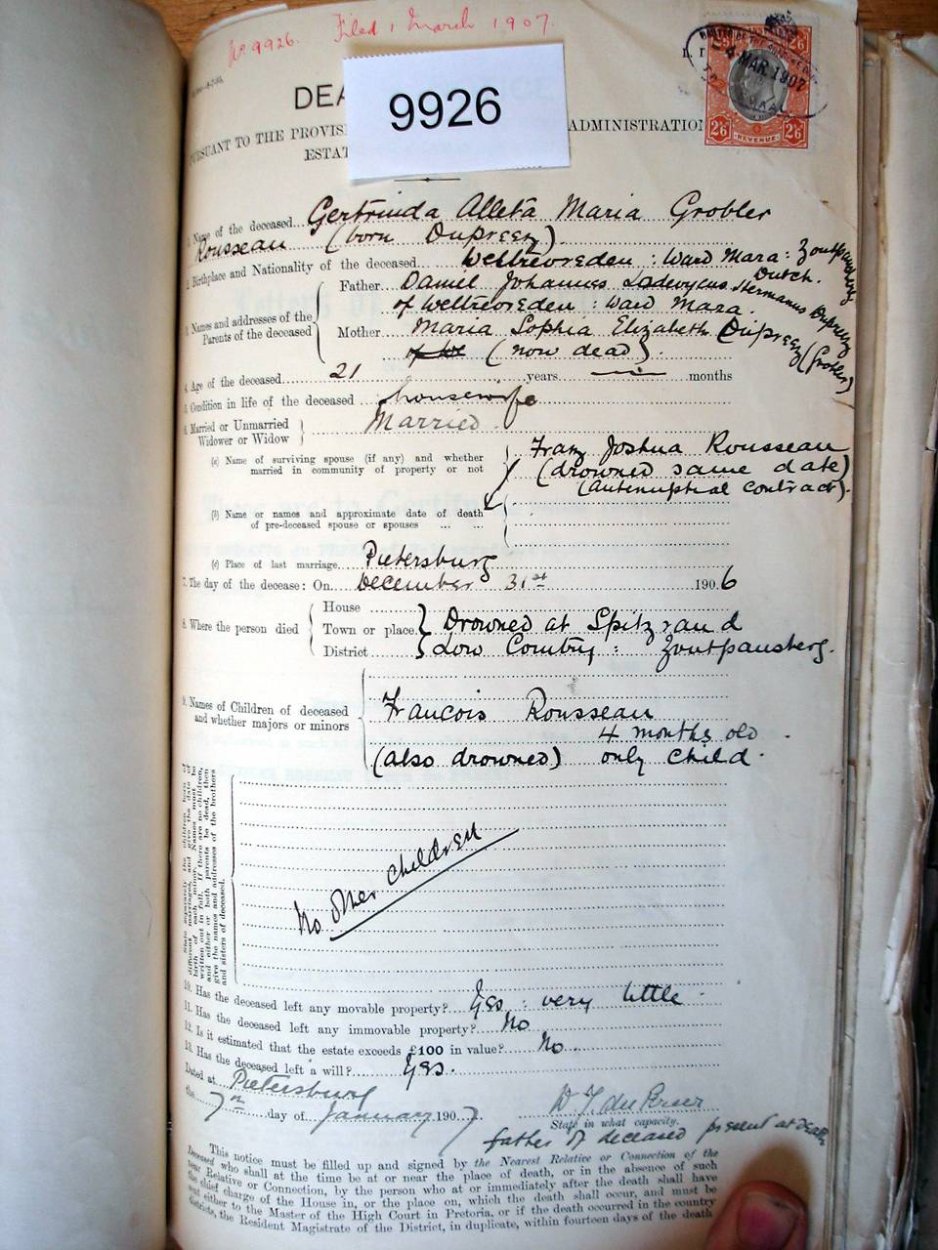 No. 9926. Filed 1 March 1907.
9926
DEA
PURSUANT TO THE PROVIS ADMINISTRATIO
ESTAT
2/6 2/6
4 MAR 1907
2/6 REVENUE 2/6
1. Name of the deceased Gertruida Alleta Maria Grobler
Rousseau (born Dupreez).
2. Birthplace and Nationality of the deceased Weltevreden : Ward Mara : Zoutpansberg
Dutch.
3. Names and addresses of the Parents of the deceased
Father Daniel Johannes Lodewykus Hermanus Dupreez
of Weltevreden : Ward Mara.
Mother Maria Sophia Elizabeth Dupreez (Grobler)
(now dead).
4. Age of the deceased 21 years — months
5. Condition in life of the deceased housewife
6. Married or Unmarried Married
Widower or Widow
(a) Name of surviving spouse (if any) and whether Franz Joshua Rousseau
married in community of property or not (drowned same date)
(antenuptial contract).
(b) Name or names and approximate date of death
of pre-deceased spouse or spouses ... ...
(c) Place of last marriage Pietersburg
7. The day of the decease: On December 31st 1906
8. Where the person died
House
Town or place Drowned at Spitzrand
District Low Country : Zoutpansberg.
9. Names of Children of deceased Francois Rousseau
and whether majors or minors
4 months old
(also drowned) only child.
State separately the children born of
different marriages, and give the date of
birth of each minor. Names must be
written out in full. If there are no children,
and either or both parents be dead, then
give the names and addresses of the brothers
and sisters of deceased.
No other children
10. Has the deceased left any movable property? Yes : very little.
11. Has the deceased left any immovable property? No
12. Is it estimated that the estate exceeds £100 in value? No.
13. Has the deceased left a will? Yes.
Dated at Pietersburg
the 7th day of January 1907.
State in what capacity.
father of deceased present at death
This notice must be filled up and signed by the Nearest Relative or Connection of the
Deceased who shall at the time be at or near the place of death, or in the absence of such
near Relative or Connection, by the person who at or immediately after the death shall have
the chief charge of the House in, or the place on, which the death shall occur, and must be
sent either to the Master of the High Court in Pretoria, or if the death occurred in the country
districts, the Resident Magistrate of the District, in duplicate, within fourteen days of the death